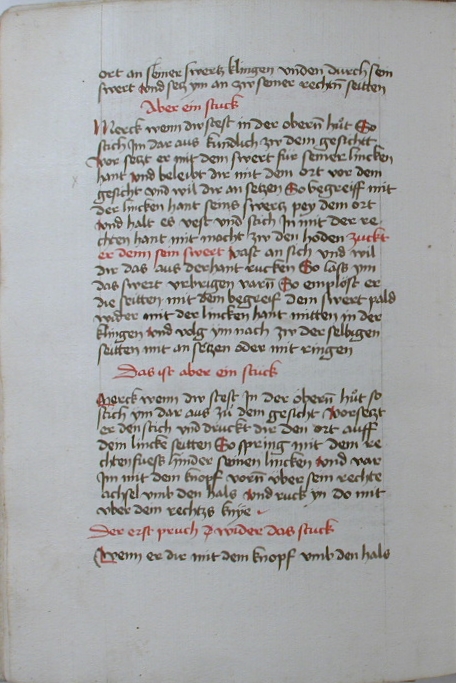 ort an seiner swertz klingen vnden durch sein
swert vnd setz ym an zw seiner rechñ seitten
Aber ein stuck
Merck wenn dw stest in der oberñ hůt So
stich im dar aus kündlich zw dem gesichtt
vor setzt er mit dem swert für seiner lincken
hant vnd beleibt dir mit dem ort vor dem
gesicht vnd wil dir an setzen So begreiff mit
der lincken hant seins swertz pey dem ort
vnd halt es vest vnd stich In mit der re
chten hant mit macht zw den hoden zuckt
er denn sein swert vast an sich vnd wil
dir das aus der hant rucken So lass ym
das swert vrbrigen varñ So emplöst er
die seitten mit dem begreif dein swert pald
wider mit der lincken hant mitten in der
klingen vnd volg ym nach zw der selbigen
seitten mit an setzen oder mit ringen
Das ist aber ein stuck
Merck wenn dw stest In der oberñ hůt so
stich ym dar aus zu dem gesicht vorsetzt
er den stich vnd druckt dir den ort auff
dem lincke seitten So spring mit dem re
chten fuess hinder seinen lincken vnd var
Im mit dem knopf vorñ vber sein rechte
achsel vmb den hals vnd ruck yn do mit
vber dein rechtz knÿe
Der erst pruch wider das stuck
Wenn er dir mit dem knopf vmb den hals